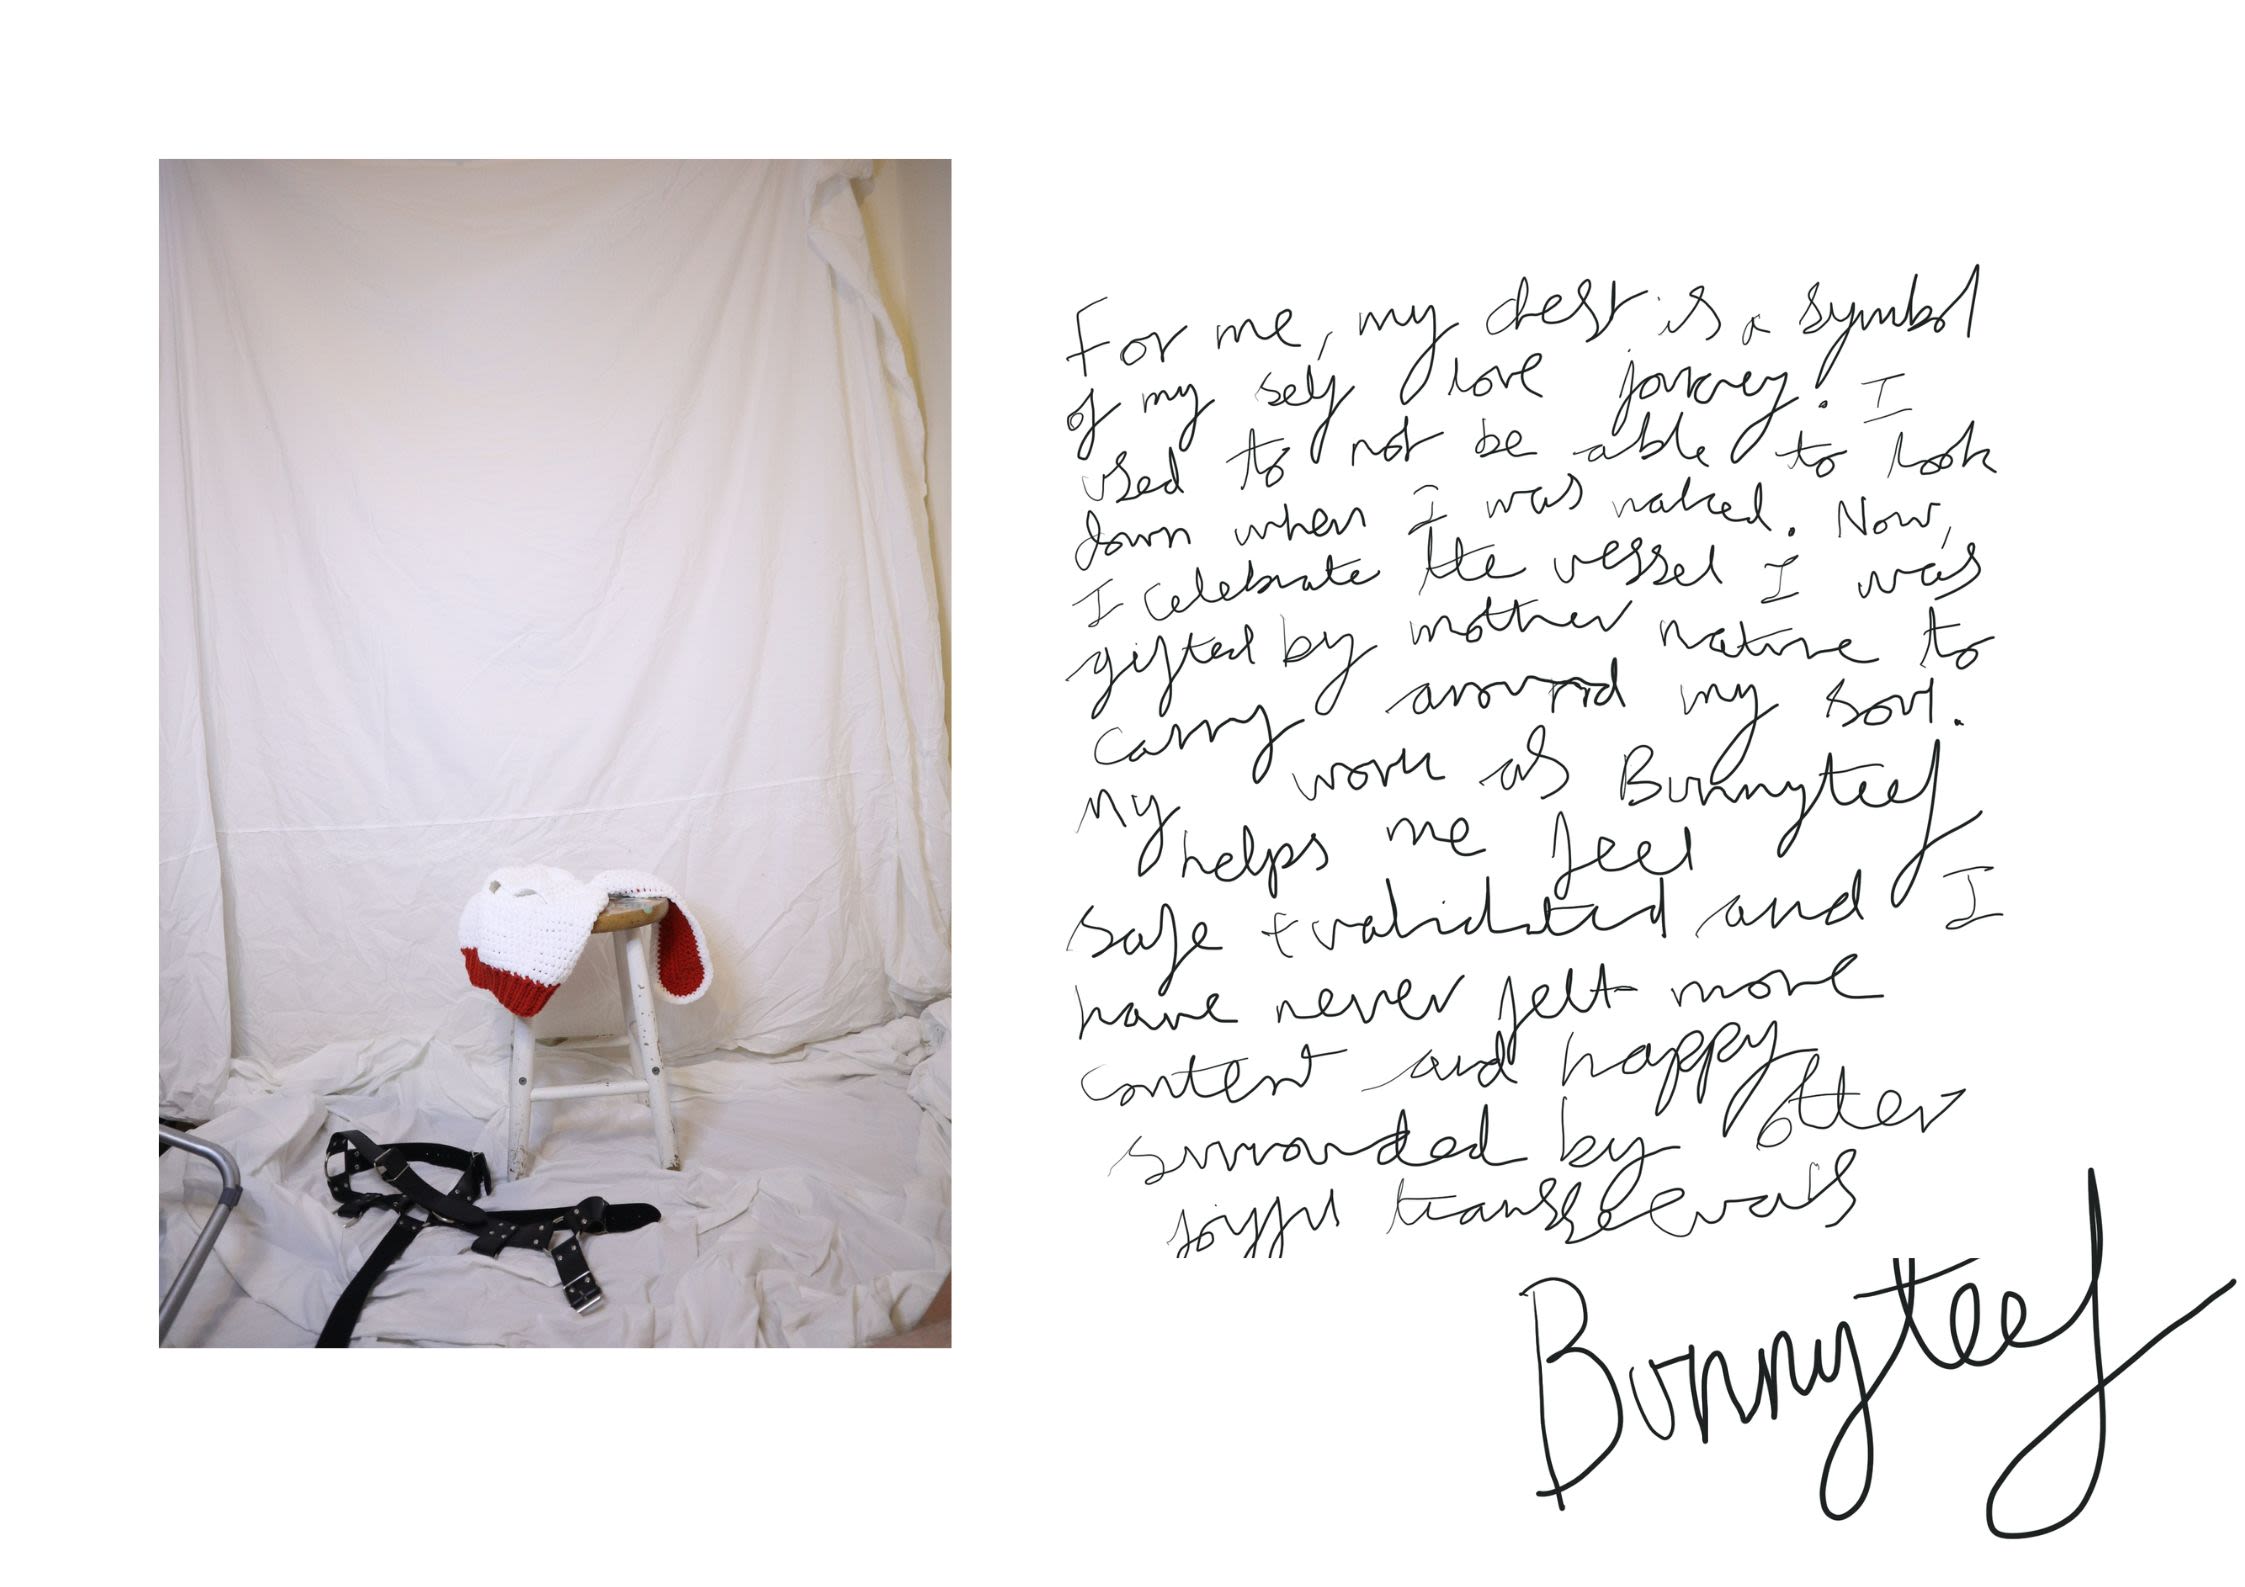 For me, my chest is a symbol
of my self love journey. I
used to not be able to look
down when I was naked. Now,
I celebrate the vessel I was
gifted by mother nature to
carry around my soul.
My work as Bunnyteef
helps me feel
safe + validated and I
have never felt more
content and happy
surrounded by other
joyful
Bunnyteef